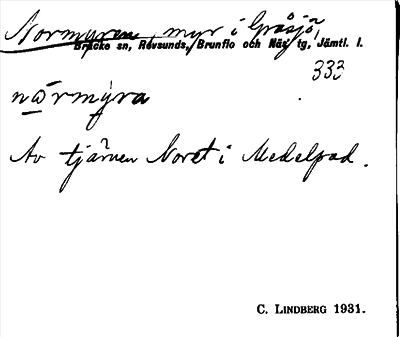 Normyren, myr i Gråsjö,
Bräcke sn, Revsunds, Brunflo och Näs tg, Jämtl. l.
333
nǡrmýra
Av tjärnen Noret i Medelpad.
C. LINDBERG 1931.